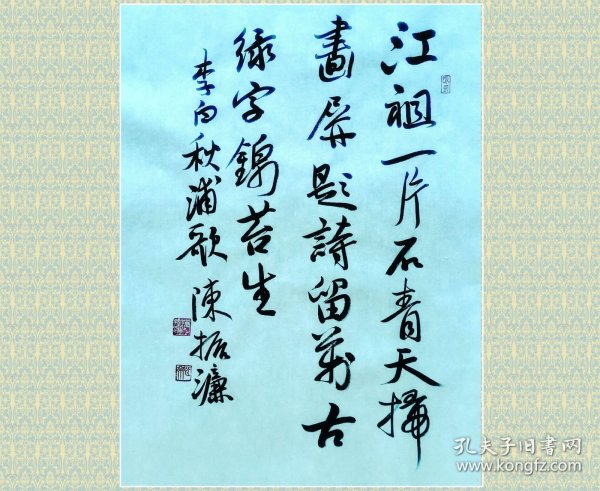 江祖一片石青天掃
畫屏題詩留萬古
綠字錦苔生
李白秋浦歌 陳振濂
孔夫子旧书网
www.kongfz.com